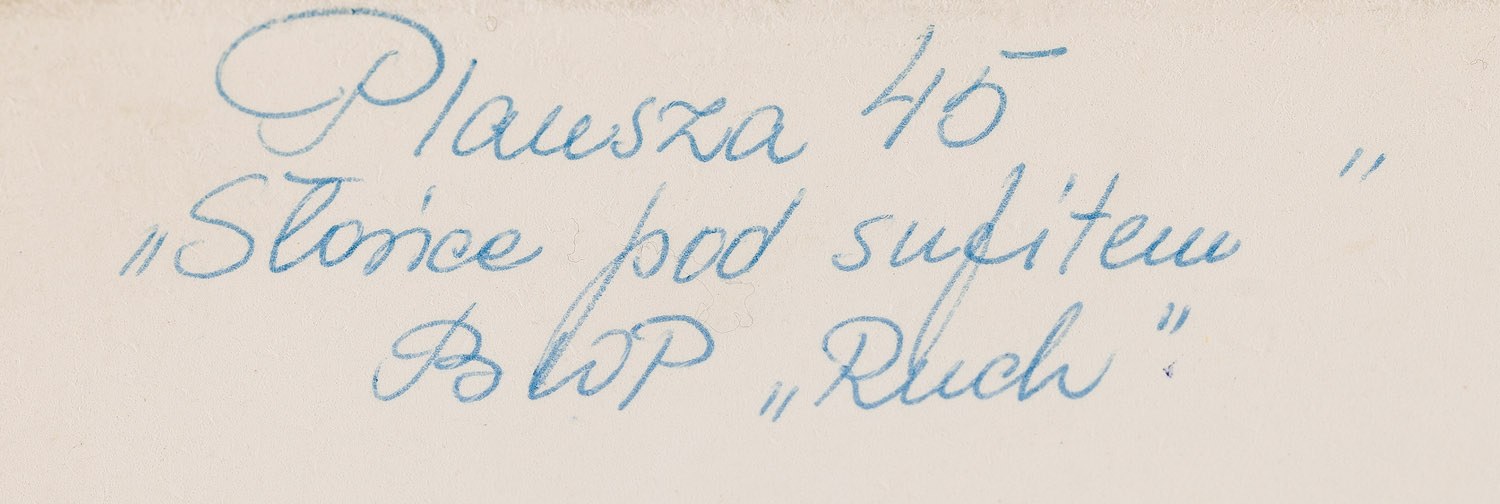 Plansza 45
„Słońce pod sufitem”
BWP „Ruch”